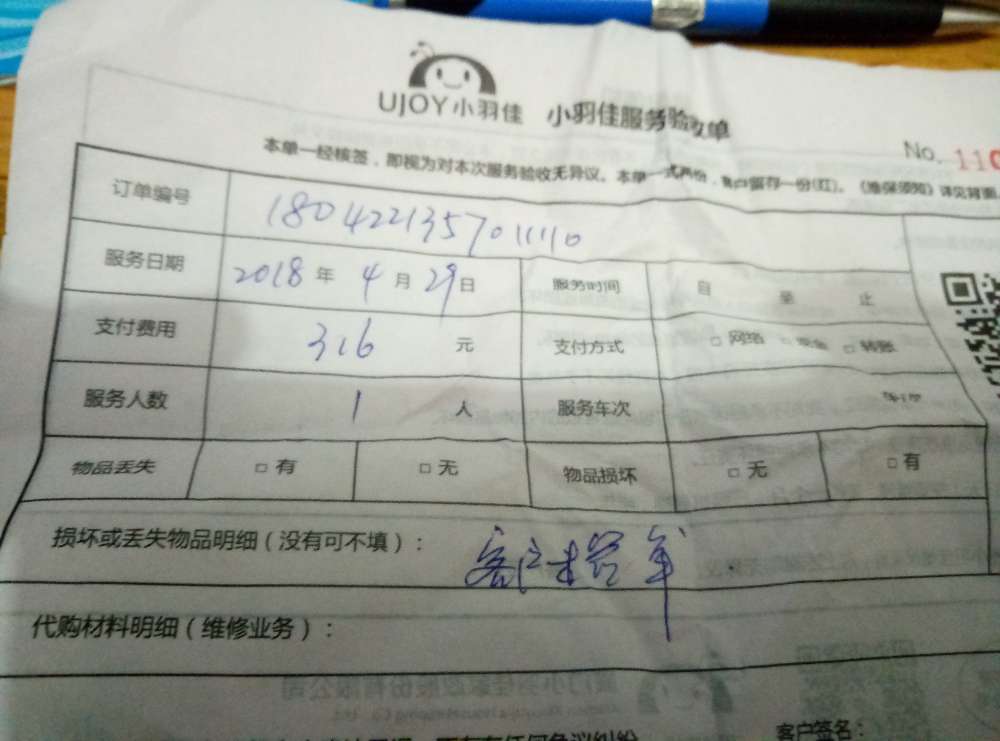 UJOY小羽佳 小羽佳服务验收单
No. 110
本单一经核签，即视为对本次服务验收无异议。本单一式两份，客户留存一份(红)。《维保须知》详见背面
订单编号 180422135701110
服务日期 2018年4月29日 服务时间 自 至 止
支付费用 316元 支付方式 □网络 □现金 □转账
服务人数 1人 服务车次
物品丢失 □有 □无 物品损坏 □无 □有
损坏或丢失物品明细（没有可不填）： 客户未签单
代购材料明细（维修业务）：
客户签名：